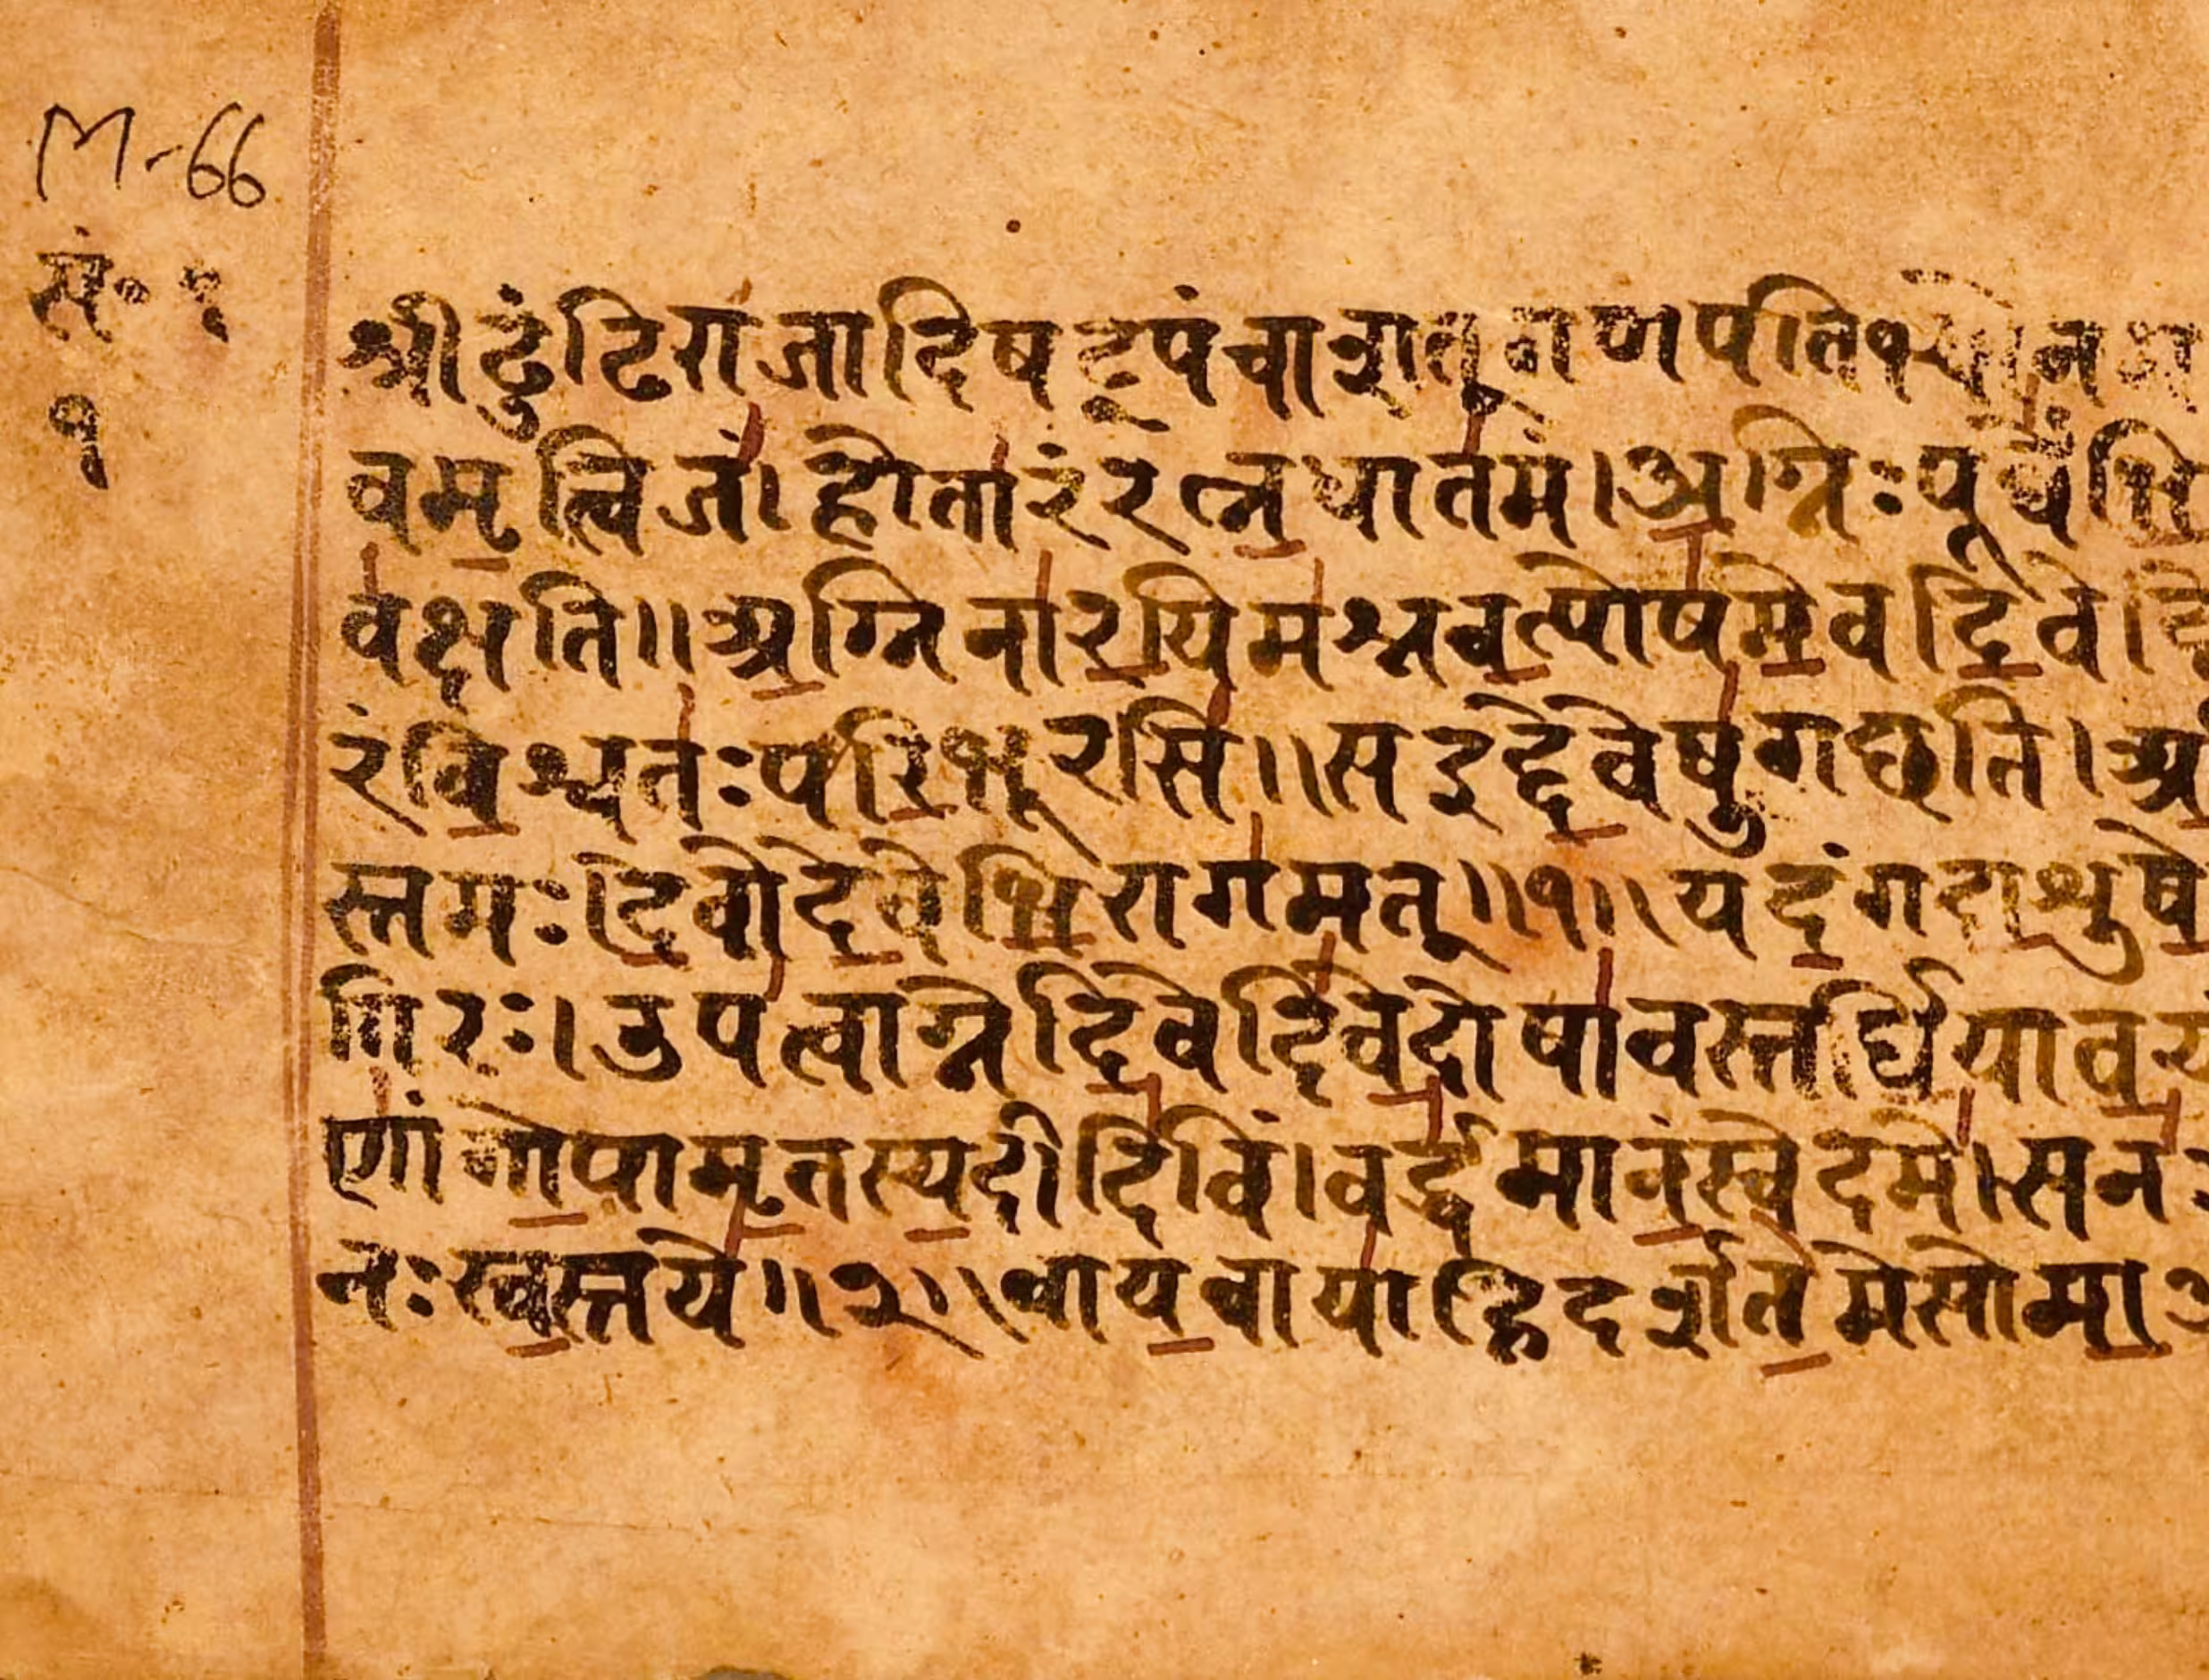 M-66
सं॰ १
१
श्रीढुंढिराजादिषट्पंचाशत् गणपतिभ्यो नम
वमृत्विजं। होतारंरत्नधातमं। अग्निःपूर्वेभि
वक्षति॥ अग्निनारयिमश्नवत्पोषमेवदिवे। दि
रंविश्वतःपरिभूरसि॥ सइद्देवेषुगछति। अ
स्तमः। देवोदेवेभिरागमत्॥१॥ यदंगदाशुषे
गिरः। उपत्वाग्नेदिवेदिवेदोषावस्तर्धियावय
णांगोपामृतस्यदीदिविं। वर्द्धमानंस्वेदमे। सन
नःस्वस्तये॥२॥ वायवायाहिदर्शतेमेसोमा